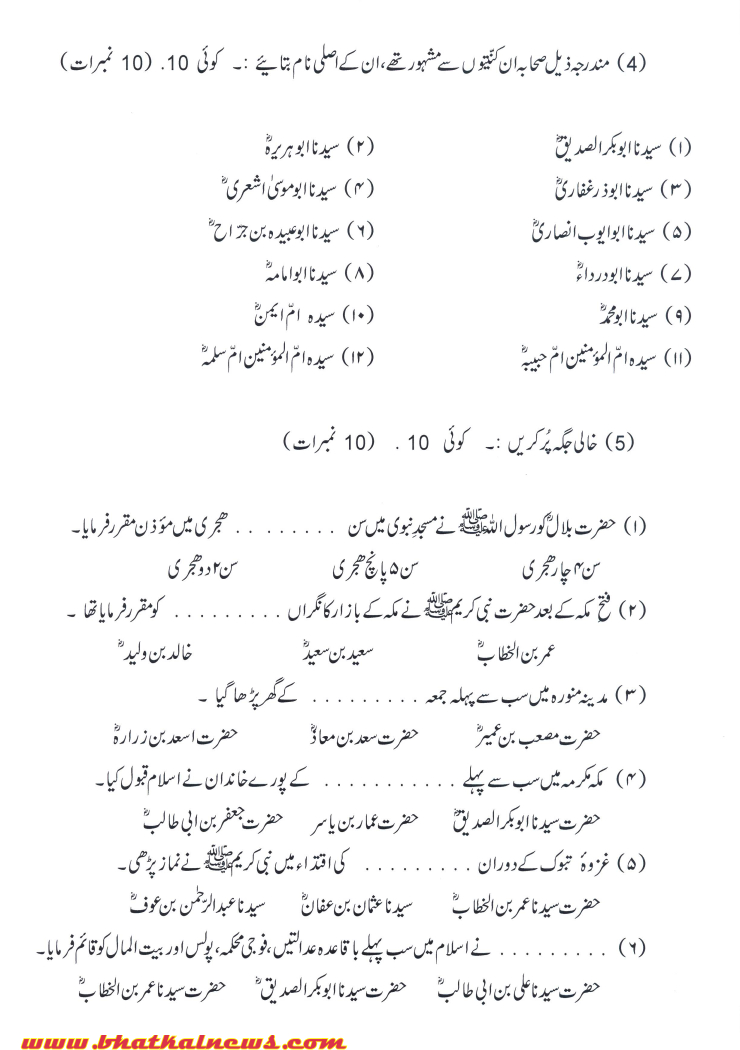 (4) مندرجہ ذیل صحابہ ان کنیّتوں سے مشہور تھے، ان کے اصلی نام بتائیے :۔ کوئی 10. (10 نمبرات)
(۱) سیدنا ابوبکر الصدیقؓ (۲) سیدنا ابو ہریرہؓ
(۳) سیدنا ابوذر غفاریؓ (۴) سیدنا ابو موسیٰ اشعریؓ
(۵) سیدنا ابو ایوب انصاریؓ (۶) سیدنا ابو عبیدہ بن جرّاحؓ
(۷) سیدنا ابودرداءؓ (۸) سیدنا ابو امامہؓ
(۹) سیدنا ابو محمدؓ (۱۰) سیدہ امّ ایمنؓ
(۱۱) سیدہ امّ المؤمنین امّ حبیبہؓ (۱۲) سیدہ امّ المؤمنین امّ سلمہؓ
(5) خالی جگہ پُر کریں :۔ کوئی 10 . (10 نمبرات)
(۱) حضرت بلالؓ کو رسول اللہ ﷺ نے مسجدِ نبوی میں سن . . . . . . . . ھجری میں مؤذن مقرر فرمایا۔
سن ۴ چار ھجری سن ۵ پانچ ھجری سن ۲ دو ھجری
(۲) فتحِ مکہ کے بعد حضرت نبی کریم ﷺ نے مکہ کے بازار کا نگراں . . . . . . . . . کو مقرر فرمایا تھا ۔
عمر بن الخطابؓ سعید بن سعیدؓ خالد بن ولیدؓ
(۳) مدینہ منورہ میں سب سے پہلہ جمعہ . . . . . . . . . کے گھر پڑھا گیا ۔
حضرت مصعب بن عمیرؓ حضرت سعد بن معاذؓ حضرت اسعد بن زرارہؓ
(۴) مکہ مکرمہ میں سب سے پہلے . . . . . . . . . . . کے پورے خاندان نے اسلام قبول کیا۔
حضرت سیدنا ابوبکر الصدیقؓ حضرت عمار بن یاسر حضرت جعفر بن ابی طالبؓ
(۵) غزوۂ تبوک کے دوران . . . . . . . . . کی اقتداء میں نبی کریم ﷺ نے نماز پڑھی۔
حضرت سیدنا عمر بن الخطابؓ سیدنا عثمان بن عفانؓ سیدنا عبدالرّحمٰن بن عوفؓ
(۶) . . . . . . . . . نے اسلام میں سب پہلے باقاعدہ عدالتیں، فوجی محکمہ، پولس اور بیت المال کو قائم فرمایا۔
حضرت سیدنا علی بن ابی طالبؓ حضرت سیدنا ابوبکر الصدیقؓ حضرت سیدنا عمر بن الخطابؓ
www.bhatkalnews.com